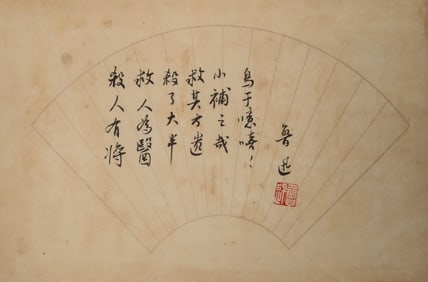 殺人有将
救人為醫
殺了大半
救其孑遺
小補之哉
烏乎噫嘻!
魯迅